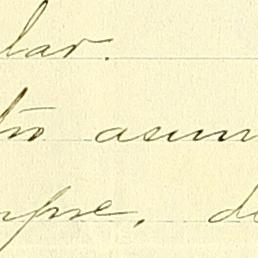 lar.
tro asun
mpre, de